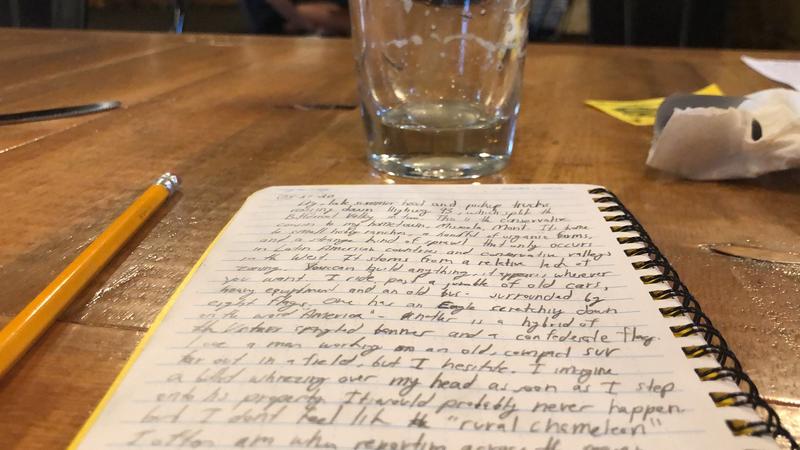 Dry, late summer heat and pickup trucks
rolling down Highway 93, which split the
Bitterroot Valley in two. This is the conservative
county to my hometown, Missoula, Mont. It's home
to small hobby ranches, a handful of organic farms,
and a strange kind of sprawl that only occurs
in Latin America countries and conservative valleys
in the West. It stems from a relative lack of
zoning. You can build anything, it appears, wherever
you want. I ride past a jumble of old cars,
heavy equiptment and an old bus - surrounded by
eight flags. One has an Eagle scratching down
on the word "America" - Another is a hybrid of
the spangled banner and a confederate flag.
I see a man working on an old, compact SUV
far out in a field, but I hesitate. I imagine
a bullet whizzing over my head as soon as I step
onto his property. It would probably never happen
but I don't feel like the "rural chameleon"
I often am when reporting across the